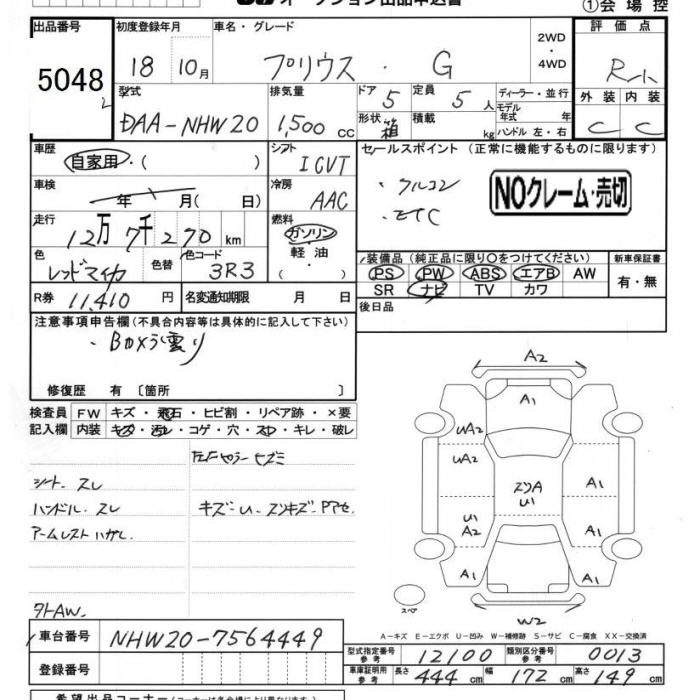 オークション出品申込書
①会場控
出品番号
5048
2
初度登録年月
18 10月
車名・グレード
プリウス・G
2WD
・
4WD
評価点
外装 内装
C C
型式
DAA-NHW20
排気量
1,500 cc
ドア 5
定員 5 人
形状 箱
積載 kg
ディーラー・並行
モデル年式 年
ハンドル 左・右
車歴
自家用・( )
シフト
ICVT
セールスポイント (正常に機能するものに限ります)
・クルコン
・ETC
NOクレーム・売切
車検
年 月( 日)
冷房
AAC
走行
12万7千270 km
燃料
ガソリン
軽・油
・( )
色
レッドマイカ
色替
色コード
3R3
装備品 (純正品に限り〇をつけてください)
PS PW ABS エアB AW
SR ナビ TV カワ
新車保証書
有・無
R券 11,410 円
名変通知期限 月 日
後日品
注意事項申告欄(不具合内容等は具体的に記入して下さい)
修復歴 有〔箇所 〕
検査員記入欄
FW キズ・飛石・ヒビ割・リペア跡・×要
内装 キズ・汚レ・コゲ・穴・スレ・キレ・破レ
シート.スレ
ハンドル.スレ
アームレストハガレ
A2
A1
UA2
UA2
U1
A2
A1
U1
A1
A1
A1
W2
スペ
A-キズ E-エクボ U-凹み W-補修跡 S-サビ C-腐食 XX-交換済
車台番号 NHW20-7564449
登録番号
型式指定番号参考 12100
類別区分番号参考 0013
車庫証明用参考 長さ 444 cm 幅 172 cm 高さ 149 cm
希望出品コーナー